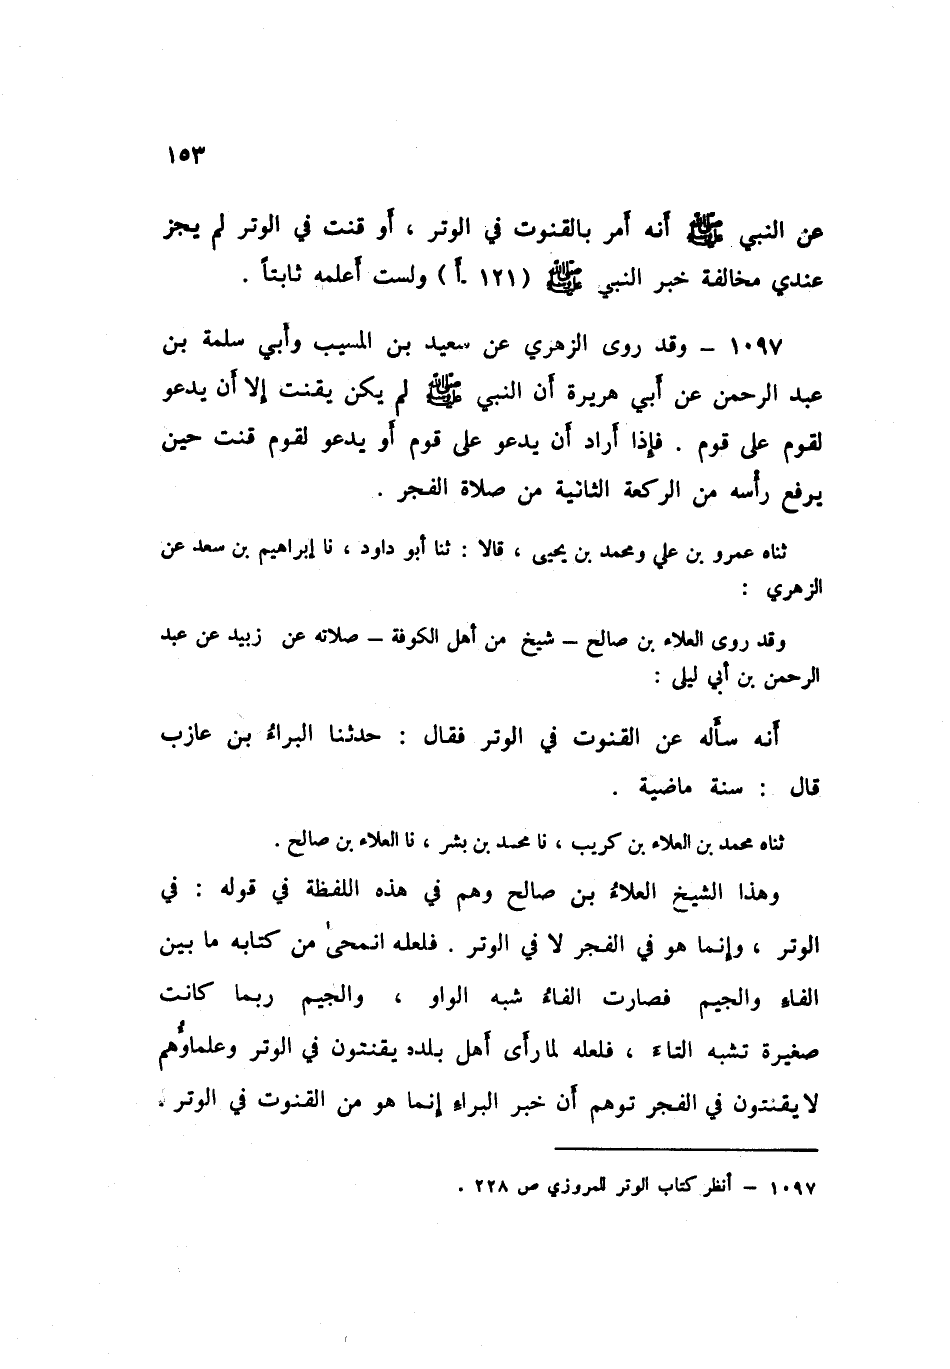 ١٥٣
عن النبي ﷺ أنه أمر بالقنوت في الوتر ، أو قنت في الوتر لم يجز
عندي مخالفة خبر النبي ﷺ (١٢١ ـ أ) ولست أعلمه ثابتاً .
١٠٩٧ ـ وقد روى الزهري عن سعيد بن المسيب وأبي سلمة بن
عبد الرحمن عن أبي هريرة أن النبي ﷺ لم يكن يقنت إلا أن يدعو
لقوم على قوم . فإذا أراد أن يدعو على قوم أو يدعو لقوم قنت حين
يرفع رأسه من الركعة الثانية من صلاة الفجر .
ثناه عمرو بن علي ومحمد بن يحيى ، قالا : ثنا أبو داود ، نا إبراهيم بن سعد عن
الزهري :
وقد روى العلاء بن صالح ـ شيخ من أهل الكوفة ـ صلاته عن زبيد عن عبد
الرحمن بن أبي ليلى :
أنه سأله عن القنوت في الوتر فقال : حدثنا البراءُ بن عازب
قال : سنة ماضية .
ثناه محمد بن العلاء بن كريب ، نا محمد بن بشر ، نا العلاء بن صالح .
وهذا الشيخ العلاءُ بن صالح وهم في هذه اللفظة في قوله : في
الوتر ، وإنما هو في الفجر لا في الوتر . فلعله انمحىٰ من كتابه ما بين
الفاءِ والجيم فصارت الفاءُ شبه الواو ، والجيم ربما كانت
صغيرة تشبه التاءَ ، فلعله لما رأى أهل بلده يقنتون في الوتر وعلماؤُهم
لا يقنتون في الفجر توهم أن خبر البراءِ إنما هو من القنوت في الوتر .
١٠٩٧ ـ أنظر كتاب الوتر للمروزي ص ٢٢٨ .